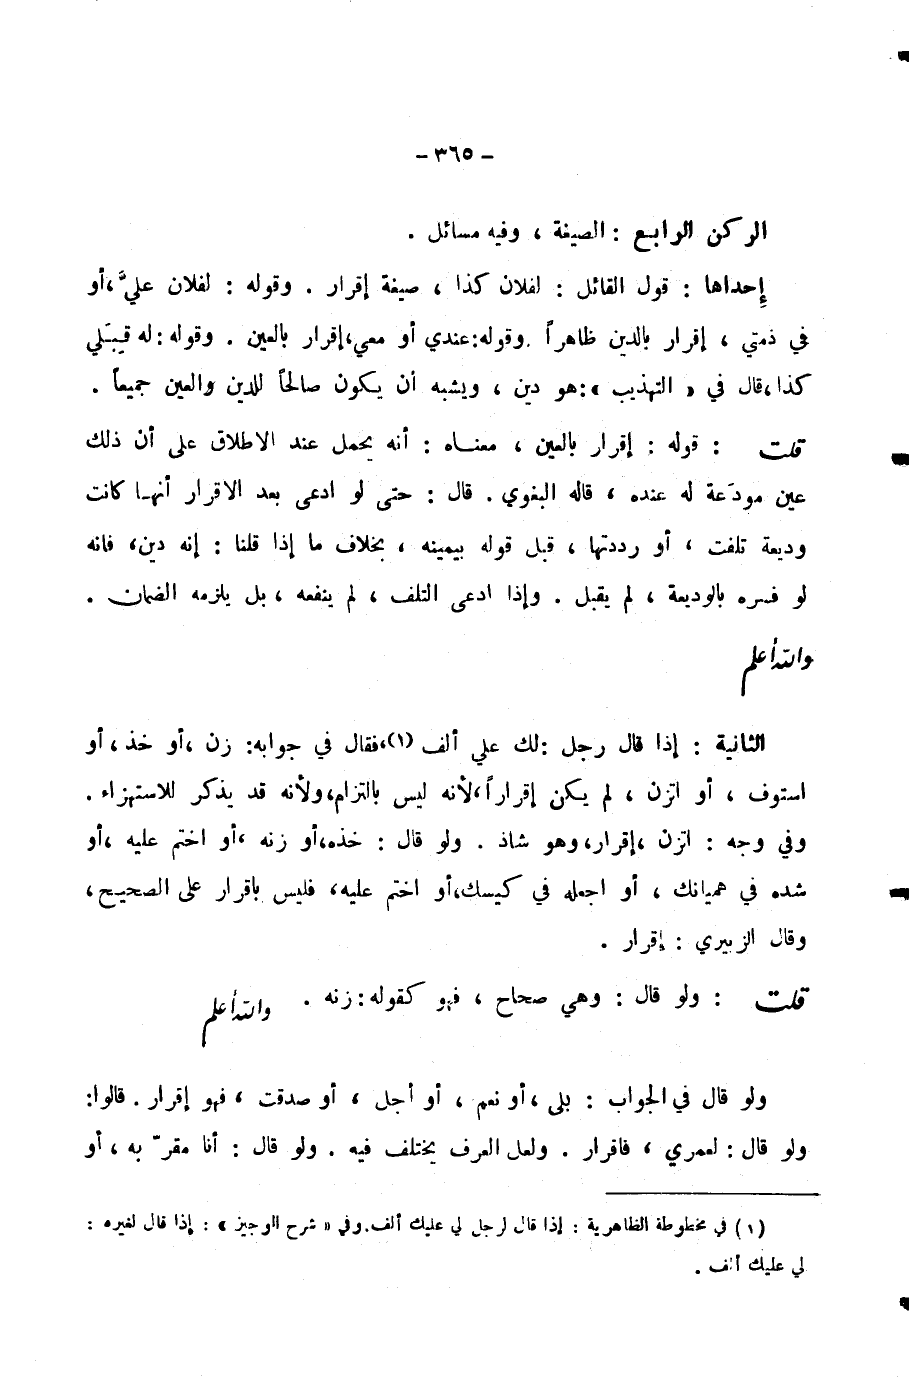 – ٣٦٥ –
الركن الرابع : الصيغة ، وفيه مسائل .
إحداها : قول القائل : لفلان كذا ، صيغة إقرار . وقوله : لفلان عليَّ ،أو
في ذمتي ، إقرار بالدين ظاهراً .وقوله:عندي أو معي،إقرار بالعين . وقوله :له قِبَلي
كذا،قال في « التهذيب »:هو دين ، ويشبه أن يكون صالحاً للدين والعين جميعاً .
قلت : قوله : إقرار بالعين ، معناه : أنه يحمل عند الاطلاق على أن ذلك
عين مودَعة له عنده ، قاله البغوي . قال : حتى لو ادعى بعد الاقرار أنها كانت
وديعة تلفت ، أو رددتها ، قبل قوله بيمينه ، بخلاف ما إذا قلنا : إنه دين، فانه
لو فسره بالوديعة ، لم يقبل . وإذا ادعى التلف ، لم ينفعه ، بل يلزمه الضمان .
والله أعلم
الثانية : إذا قال رجل :لك علي ألف (١)،فقال في جوابه: زن ،أو خذ ، أو
استوف ، أو اتزن ، لم يكن إقراراً،لأنه ليس بالتزام،ولأنه قد يذكر للاستهزاء .
وفي وجه : اتزن ،إقرار،وهو شاذ . ولو قال : خذه،أو زنه ،أو اختم عليه ،أو
شده في هميانك ، أو اجعله في كيسك،أو اختم عليه، فليس باقرار على الصحيح،
وقال الزبيري : إقرار .
قلت : ولو قال : وهي صحاح ، فهو كقوله:زنه . والله أعلم
ولو قال في الجواب : بلى ،أو نعم ، أو أجل ، أو صدقت ، فهو إقرار . قالوا:
ولو قال : لعمري ، فاقرار . ولعل العرف يختلف فيه . ولو قال : أنا مقرّ به ، أو
(١) في مخطوطة الظاهرية : إذا قال لرجل لي عليك ألف.وفي « شرح الوجيز » : إذا قال لغيره :
لي عليك ألف .